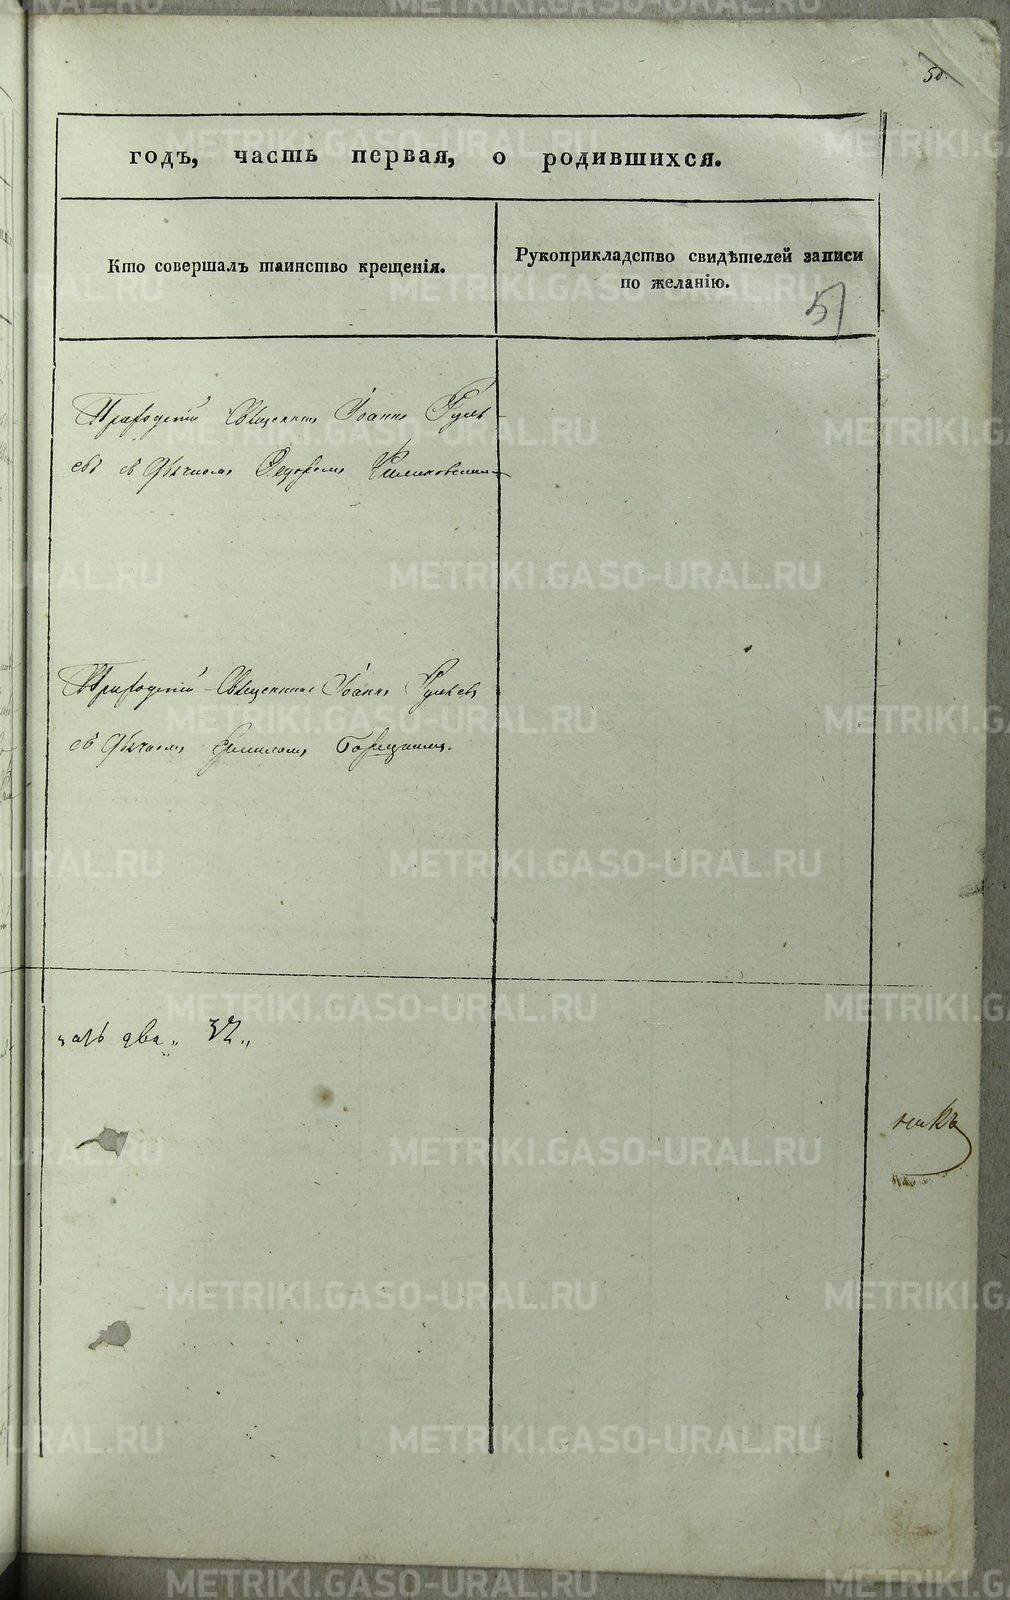 50.
годъ, часть первая, о родившихся.
Кто совершалъ таинство крещенія.
Рукоприкладство свидѣтелей записи
по желанію.
51
Приходскій Священникъ Іоаннъ Гуля-
евъ съ Дьячкомъ Ѳедоромъ
Приходскій Священникъ Іоаннъ Гуляевъ
съ Дьячкомъ
два „ 32 „
METRIKI.GASO-URAL.RU